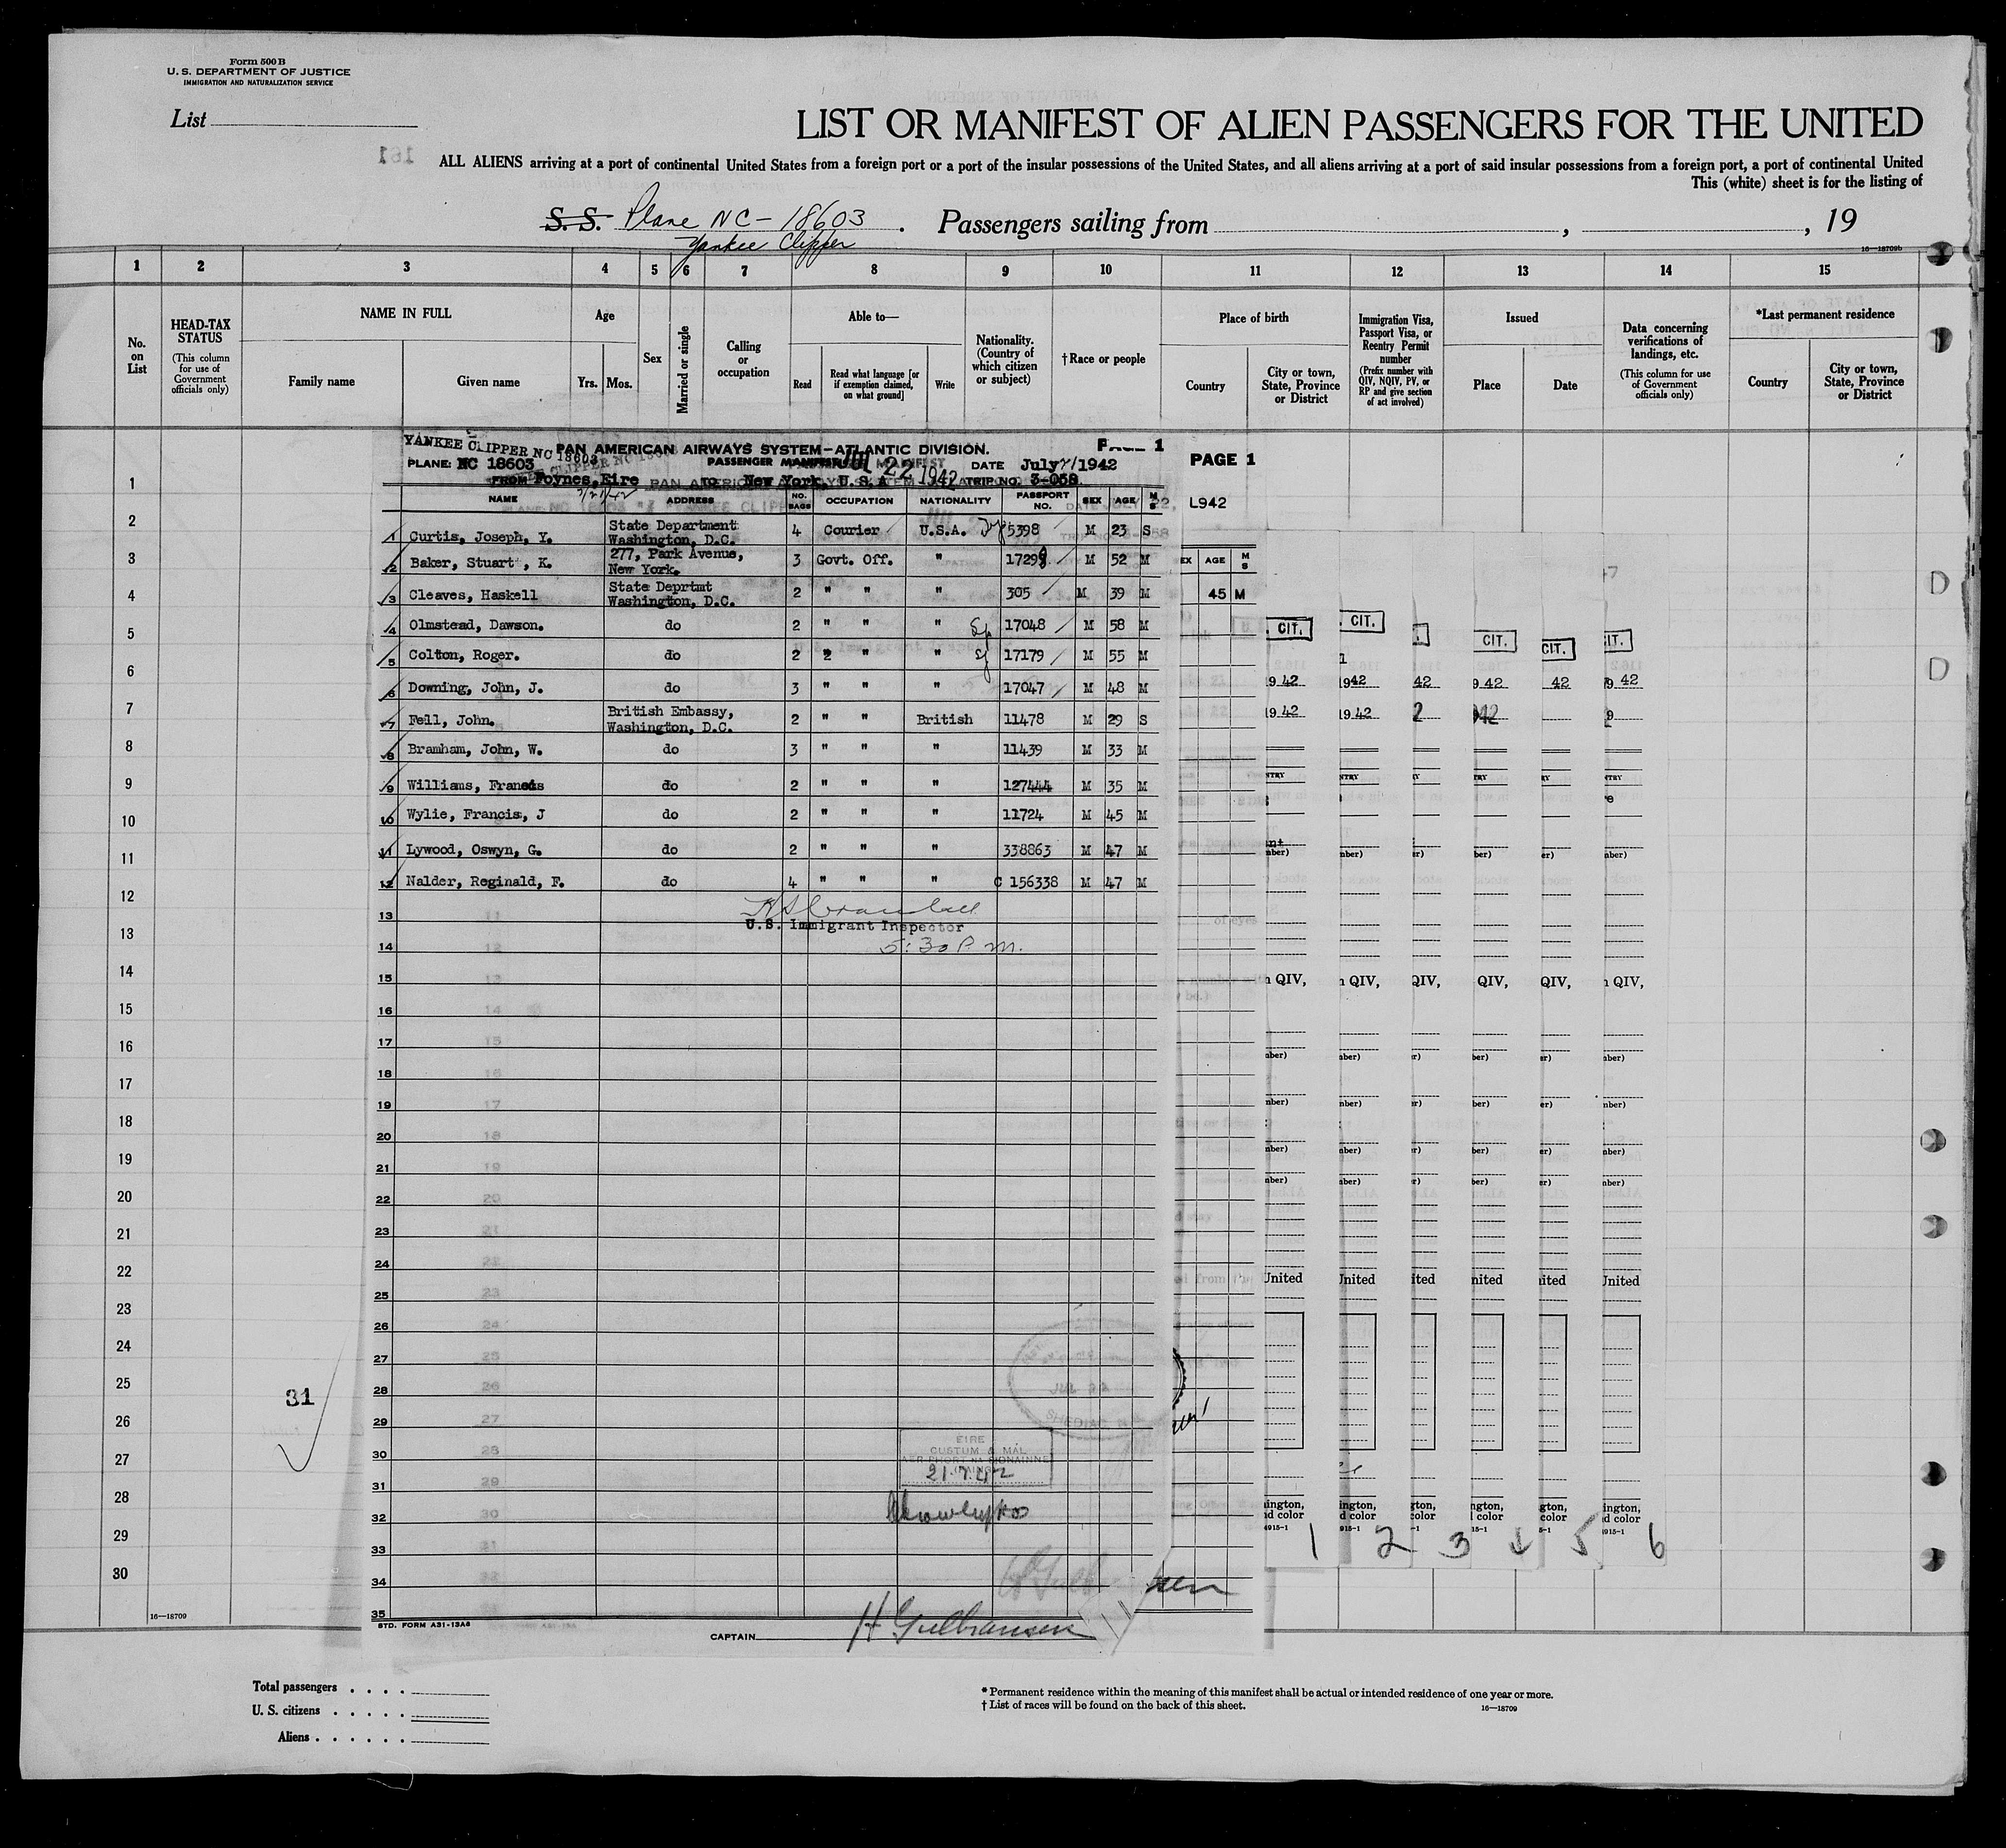 Form 500 B
U. S. DEPARTMENT OF JUSTICE
IMMIGRATION AND NATURALIZATION SERVICE
List
LIST OR MANIFEST OF ALIEN PASSENGERS FOR THE UNITED
161
ALL ALIENS arriving at a port of continental United States from a foreign port or a port of the insular possessions of the United States, and all aliens arriving at a port of said insular possessions from a foreign port, a port of continental United
This (white) sheet is for the listing of
S. S. Plane NC-18603. Passengers sailing from , , 19
Yankee Clipper
16—18709b
1 2 3 4 5 6 7 8 9 10 11 12 13 14 15
No. on List
HEAD-TAX STATUS
(This column for use of Government officials only)
NAME IN FULL
Family name
Given name
Age
Yrs. Mos.
Sex
Married or single
Calling or occupation
Able to—
Read
Read what language [or if exemption claimed, on what ground]
Write
Nationality. (Country of which citizen or subject)
†Race or people
Place of birth
Country
City or town, State, Province or District
Immigration Visa, Passport Visa, or Reentry Permit number
(Prefix number with QIV, NQIV, PV, or RP and give section of act involved)
Issued
Place
Date
Data concerning verifications of landings, etc.
(This column for use of Government officials only)
*Last permanent residence
Country
City or town, State, Province or District
YANKEE CLIPPER NC 18603
PAN AMERICAN AIRWAYS SYSTEM—ATLANTIC DIVISION.
1
PAGE 1
PLANE: NC 18603 PASSENGER MANIFEST JUL 22 1942 DATE July 21 1942
FROM Foynes, Eire to New York, U.S.A TRIP NO. 3-058
7/21/42
NAME ADDRESS NO. BAGS OCCUPATION NATIONALITY PASSPORT NO. SEX AGE M S
L942
1 Curtis, Joseph, Y. State Department Washington, D.C. 4 Courier U.S.A. 5398 M 23 S
2 Baker, Stuart, K. 277, Park Avenue, New York. 3 Govt. Off. " 17298 M 52 M
3 Cleaves, Haskell State Deprtmt Washington, D.C. 2 " " " 305 M 39 M
4 Olmstead, Dawson. do 2 " " " 17048 M 58 M
5 Colton, Roger. do 2 " " " 17179 M 55 M
6 Downing, John, J. do 3 " " " 17047 M 48 M
7 Fell, John. British Embassy, Washington, D.C. 2 " " British 11478 M 29 S
8 Bramham, John, W. do 3 " " " 11439 M 33 M
9 Williams, Francis do 2 " " " 127444 M 35 M
10 Wylie, Francis, J do 2 " " " 11724 M 45 M
11 Lywood, Oswyn, G. do 2 " " " 338863 M 47 M
12 Nalder, Reginald, F. do 4 " " " C 156338 M 47 M
EX AGE M S
45 M
CIT. CIT. CIT. CIT. IT.
19 42 19 42 42 9 42 42 9 42
19 42 19 42 2 942 9
U.S. Immigrant Inspector
5:30 P.m.
13
14
15
16
17
18
19
20
21
22
23
24
25
26
27
28
29
30
31
32
33
34
35
1
2
3
4
5
6
7
8
9
10
11
12
13
14
15
16
17
18
19
20
21
22
23
24
25
26
27
28
29
30
n QIV, n QIV, QIV, QIV, QIV, n QIV,
United United ited nited ited United
31
SHEDIAC
EIRE
CUSTUM & MÁL
21.7.42
ington, ington, gton, ngton, gton, ington,
d color d color color l color color d color
1 2 3 4 5 6
16—18709
STD. FORM A31-13A6
CAPTAIN H Gulbransen
Total passengers . . . .
U. S. citizens . . . . .
Aliens . . . . . .
* Permanent residence within the meaning of this manifest shall be actual or intended residence of one year or more.
† List of races will be found on the back of this sheet.
16—18709